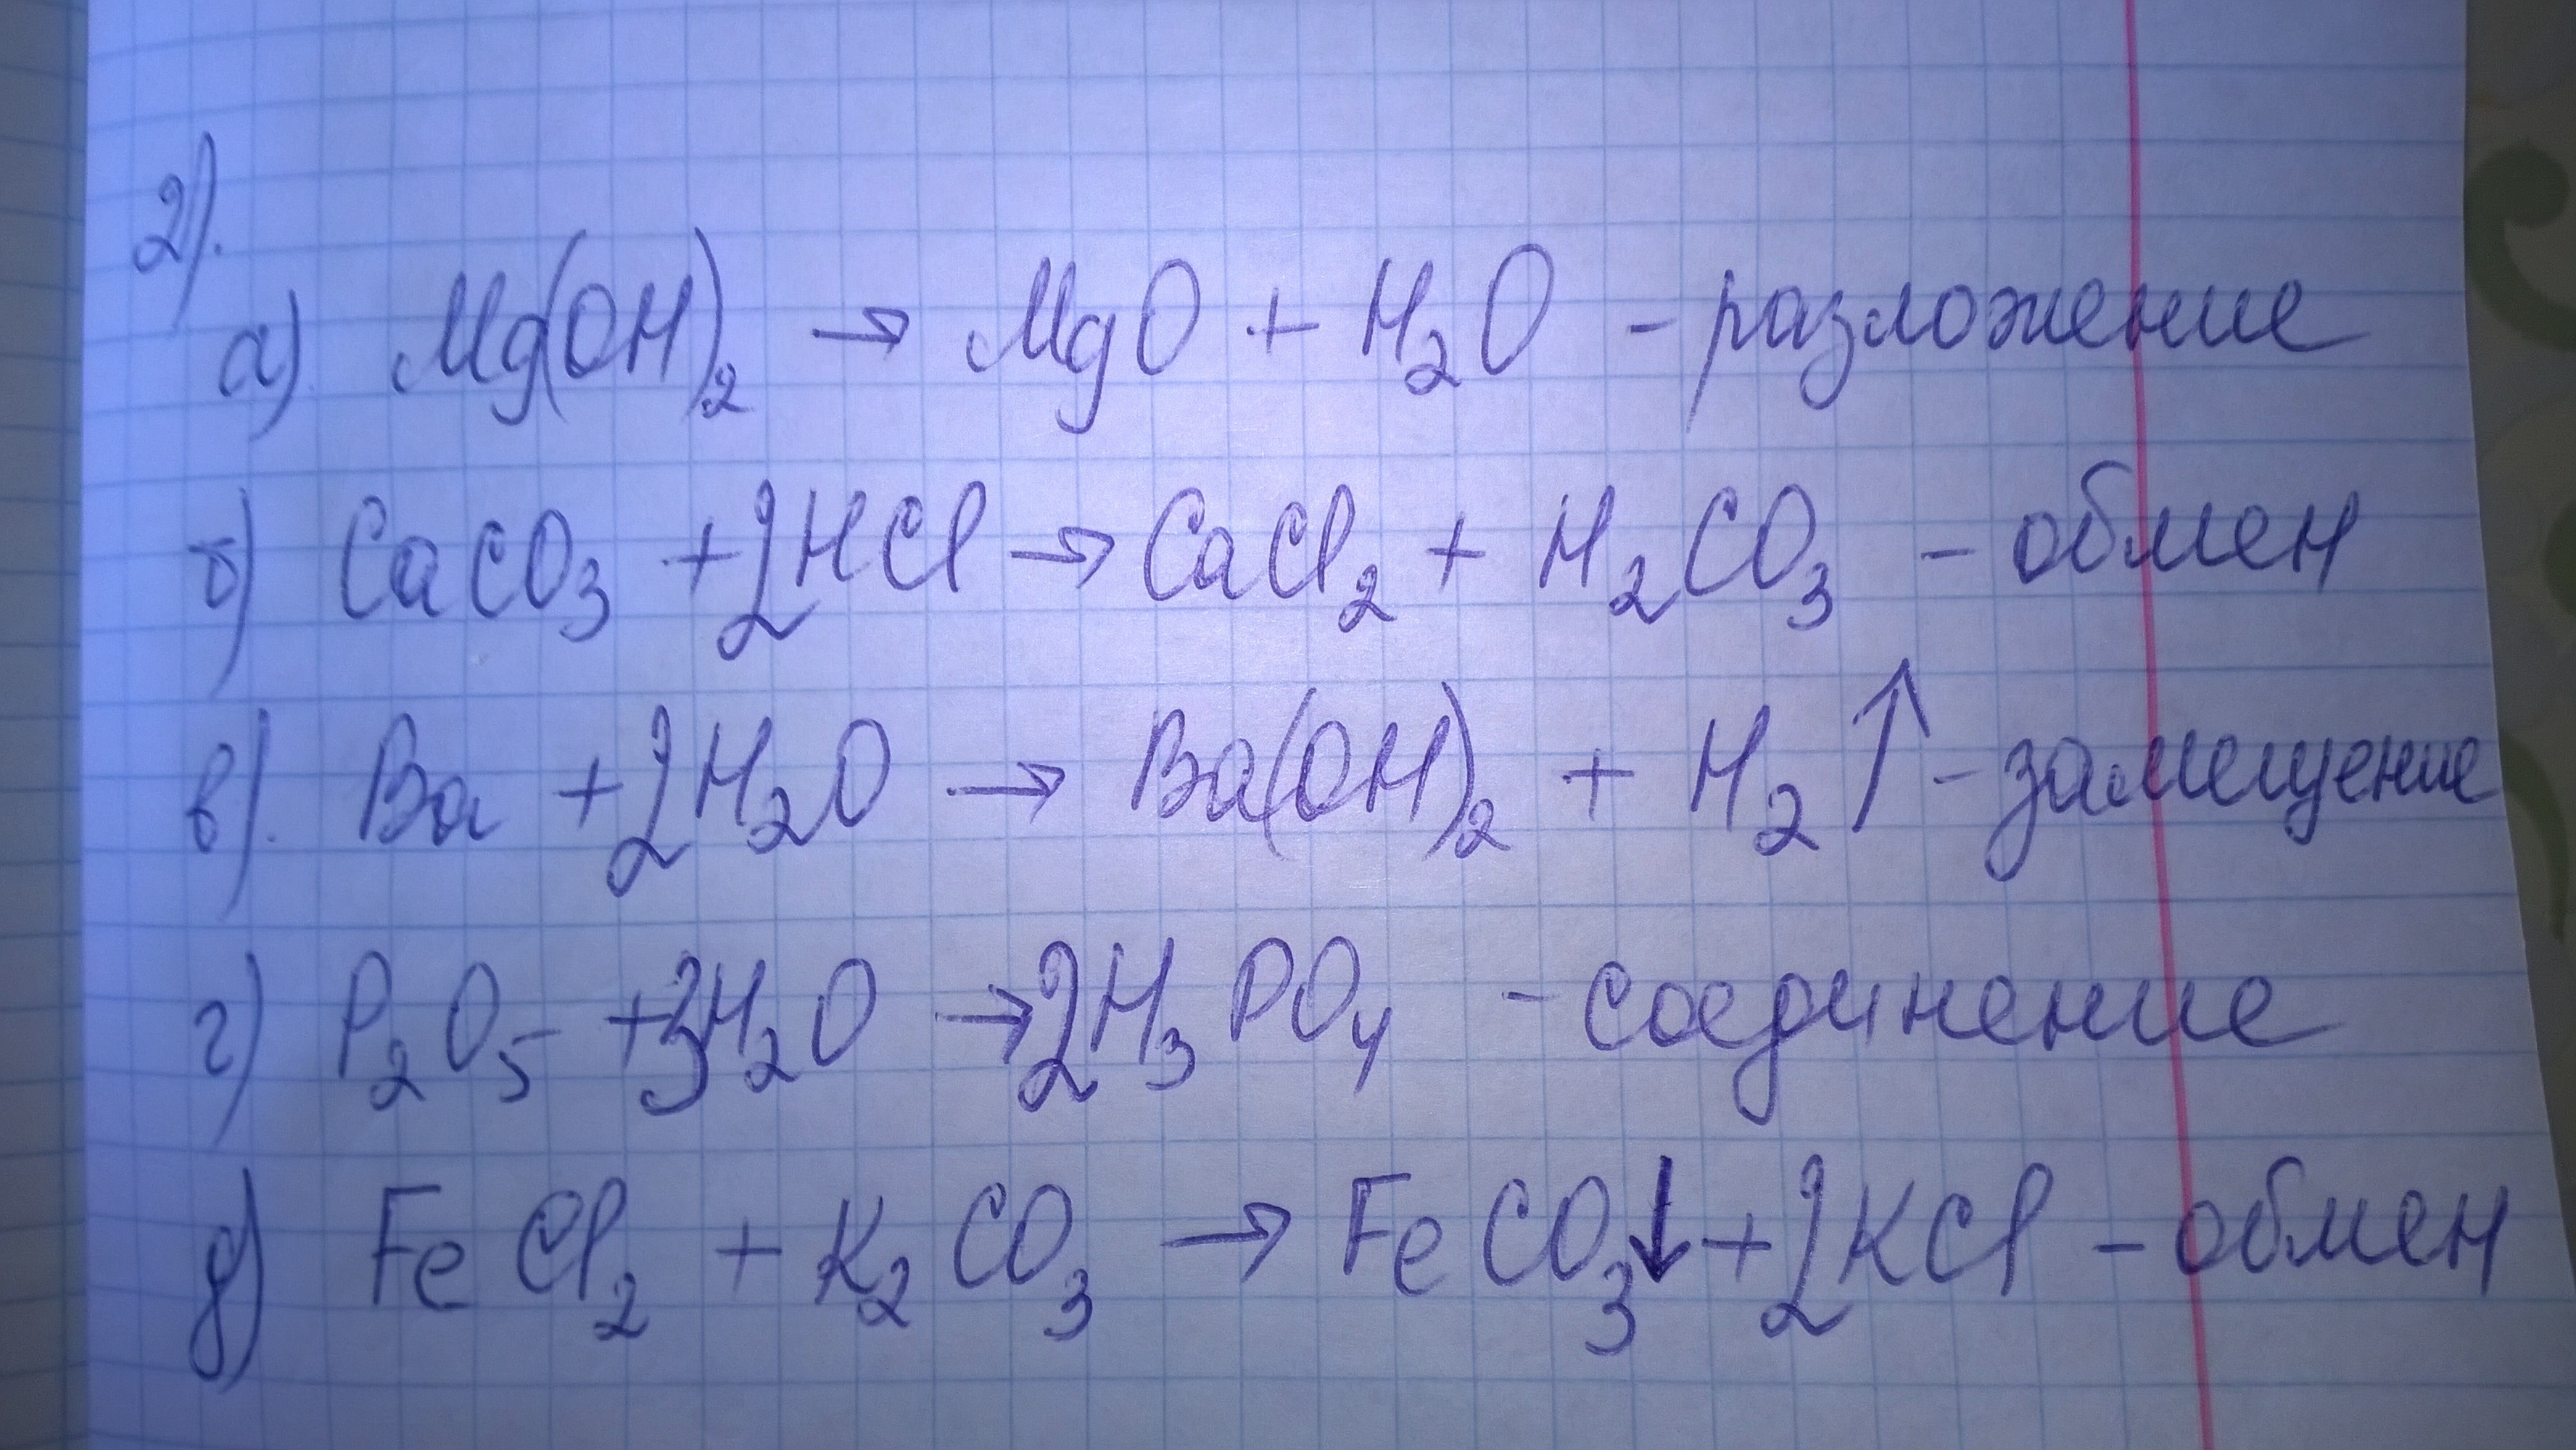 2).
а) Mg(OH)₂ → MgO + H₂O - разложение
б) CaCO₃ + 2HCl → CaCl₂ + H₂CO₃ - обмен
в). Ba + 2H₂O → Ba(OH)₂ + H₂↑ - замещение
г) P₂O₅ + 3H₂O → 2H₃PO₄ - соединение
д) FeCl₂ + K₂CO₃ → FeCO₃↓ + 2KCl - обмен